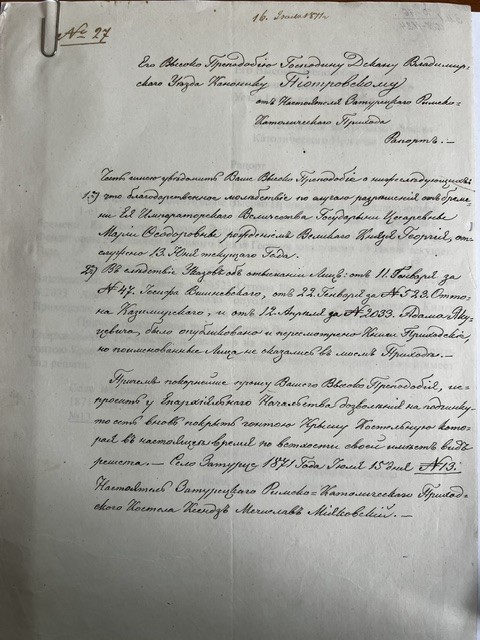 16. Июля 1871 г.
№ 27
Его Высоко Преподобію Господину Декану Владимир-
скаго Уѣзда Канонику Піотровскому
отъ Настоятеля Затурцкаго Римско=
Католическаго Прихода
Рапортъ. —
Честь имею увѣдомить Ваше Высоко Преподобіе о нижеслѣдующихъ:
1.) что благодарственное молебствіе по случаю разрѣшенія отъ бреме-
ни Ея Императорскаго Величества Государыни Цесаревны
Маріи Ѳеодоровны рожденіемъ Великаго Князя Георгія, от-
служено 13. Іюня текущаго Года.
2.) Въ слѣдствіе Указовъ объ отысканіи Лицъ: отъ 11. Генваря за
№ 47. Іосифа Вишневскаго, отъ 22. Генваря за № 523. Отто-
на Казимирскаго, и отъ 12. Апрѣля за № 2033. Адама
было опубликовано и пересмотрено Книги Приходскія,
но поименованные Лица не оказались въ моемъ Приходѣ. —
Причемъ покорнѣйше прошу Вашего Высоко Преподобія, ис-
просить у Епархіяльнаго Начальства дозволенія на починку
то есть вновь покрыть гонтою Крышу Костельную кото-
рая въ настоящее время по ветхости своей имѣетъ видъ
решета. — Село Затурце 1871 Года Іюля 15 дня № 13.
Настоятель Затурцкаго Римско=Католическаго Приход-
скаго Костела Ксендзъ Мечиславъ Міяковскій. —